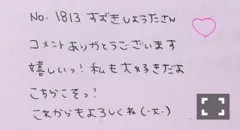 No. 1813 すずきしょうたさん
コメントありがとうございます
嬉しいっ！私も大好きだよ
こちらこそっ！
これからもよろしくね(･x･)